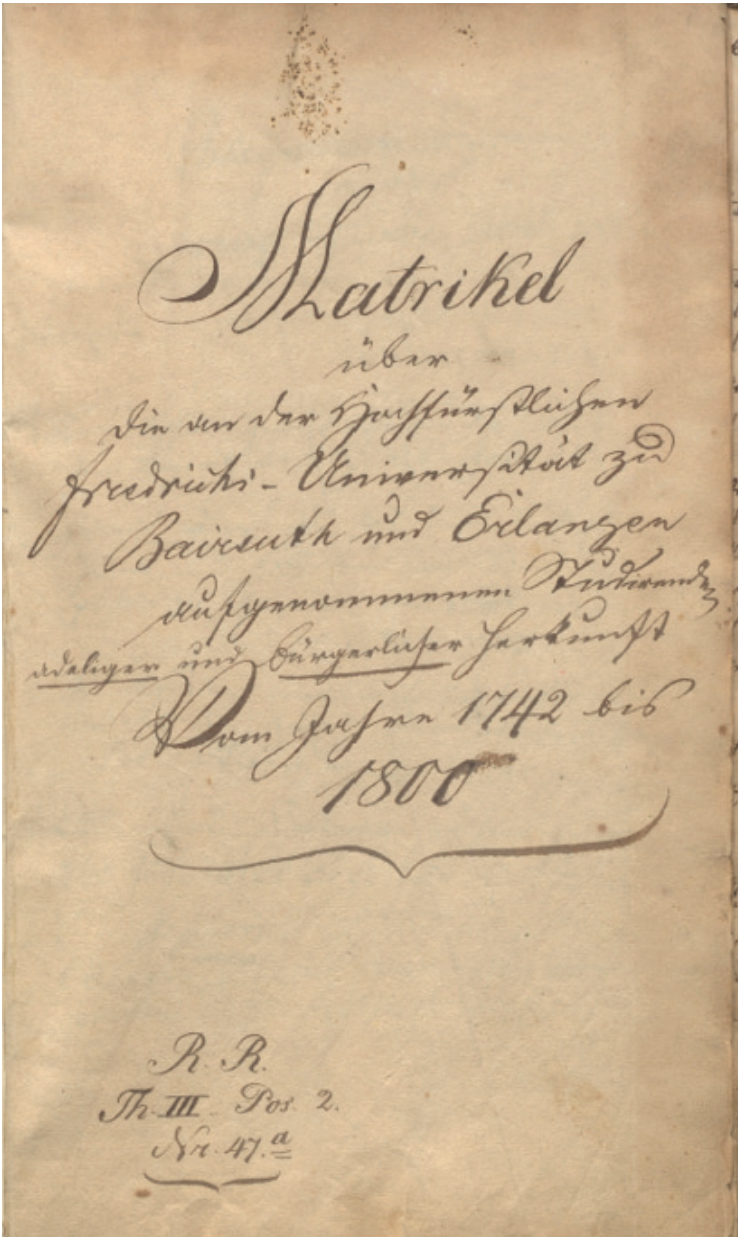 Matrikel
über
die an der Hochfürstlichen
Friedrichs-Universität zu
Baireuth und Erlangen
aufgenommenen Studirenden
adeliger und bürgerlicher Herkunft
Vom Jahre 1742 bis
1800
R. R.
Th. III. Pos. 2.
Nr. 47.a